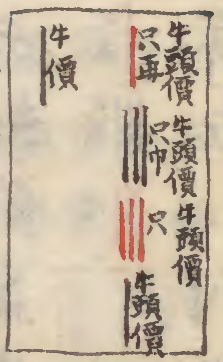 牛頭價
只再
牛頭價
只巾
牛頭價
只
牛頭價
牛價